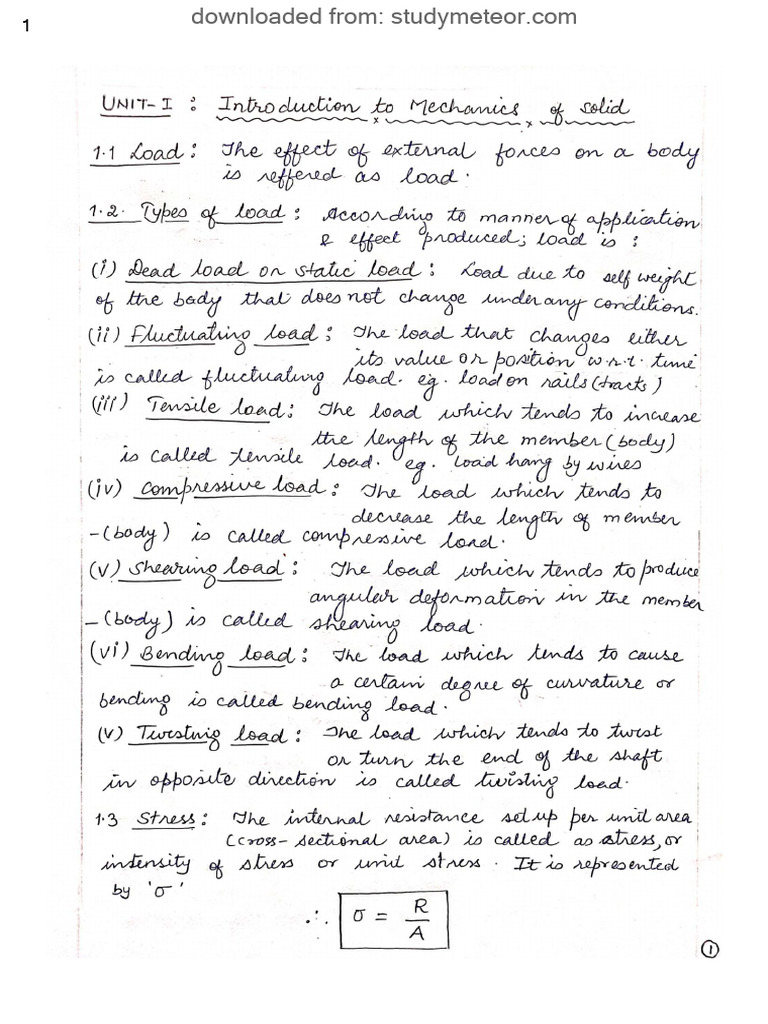 downloaded from: studymeteor.com
1
UNIT-I : Introduction to Mechanics of solid
1.1 Load : The effect of external forces on a body
is reffered as load.
1.2. Types of load : According to manner of application
& effect produced; load is :
(i) Dead load or static load : Load due to self weight
of the body that does not change under any conditions.
(ii) Fluctuating load : The load that changes either
its value or position w.r.t. time
is called fluctuating load. eg. load on rails (tracts)
(iii) Tensile load : The load which tends to increase
the length of the member (body)
is called tensile load. eg. Load hang by wires
(iv) compressive load : The load which tends to
decrease the length of member
-(body) is called compressive load.
(v) Shearing load : The load which tends to produce
angular deformation in the member
-(body) is called shearing load.
(vi) Bending load : The load which tends to cause
a certain degree of curvature or
bending is called bending load.
(v) Twisting load : The load which tends to twist
or turn the end of the shaft
in opposite direction is called twisting load.
1.3 Stress : The internal resistance set up per unit area
(cross-sectional area) is called as stress, or
intensity of stress or unit stress. It is represented
by 'σ'
∴ σ = R/A
1